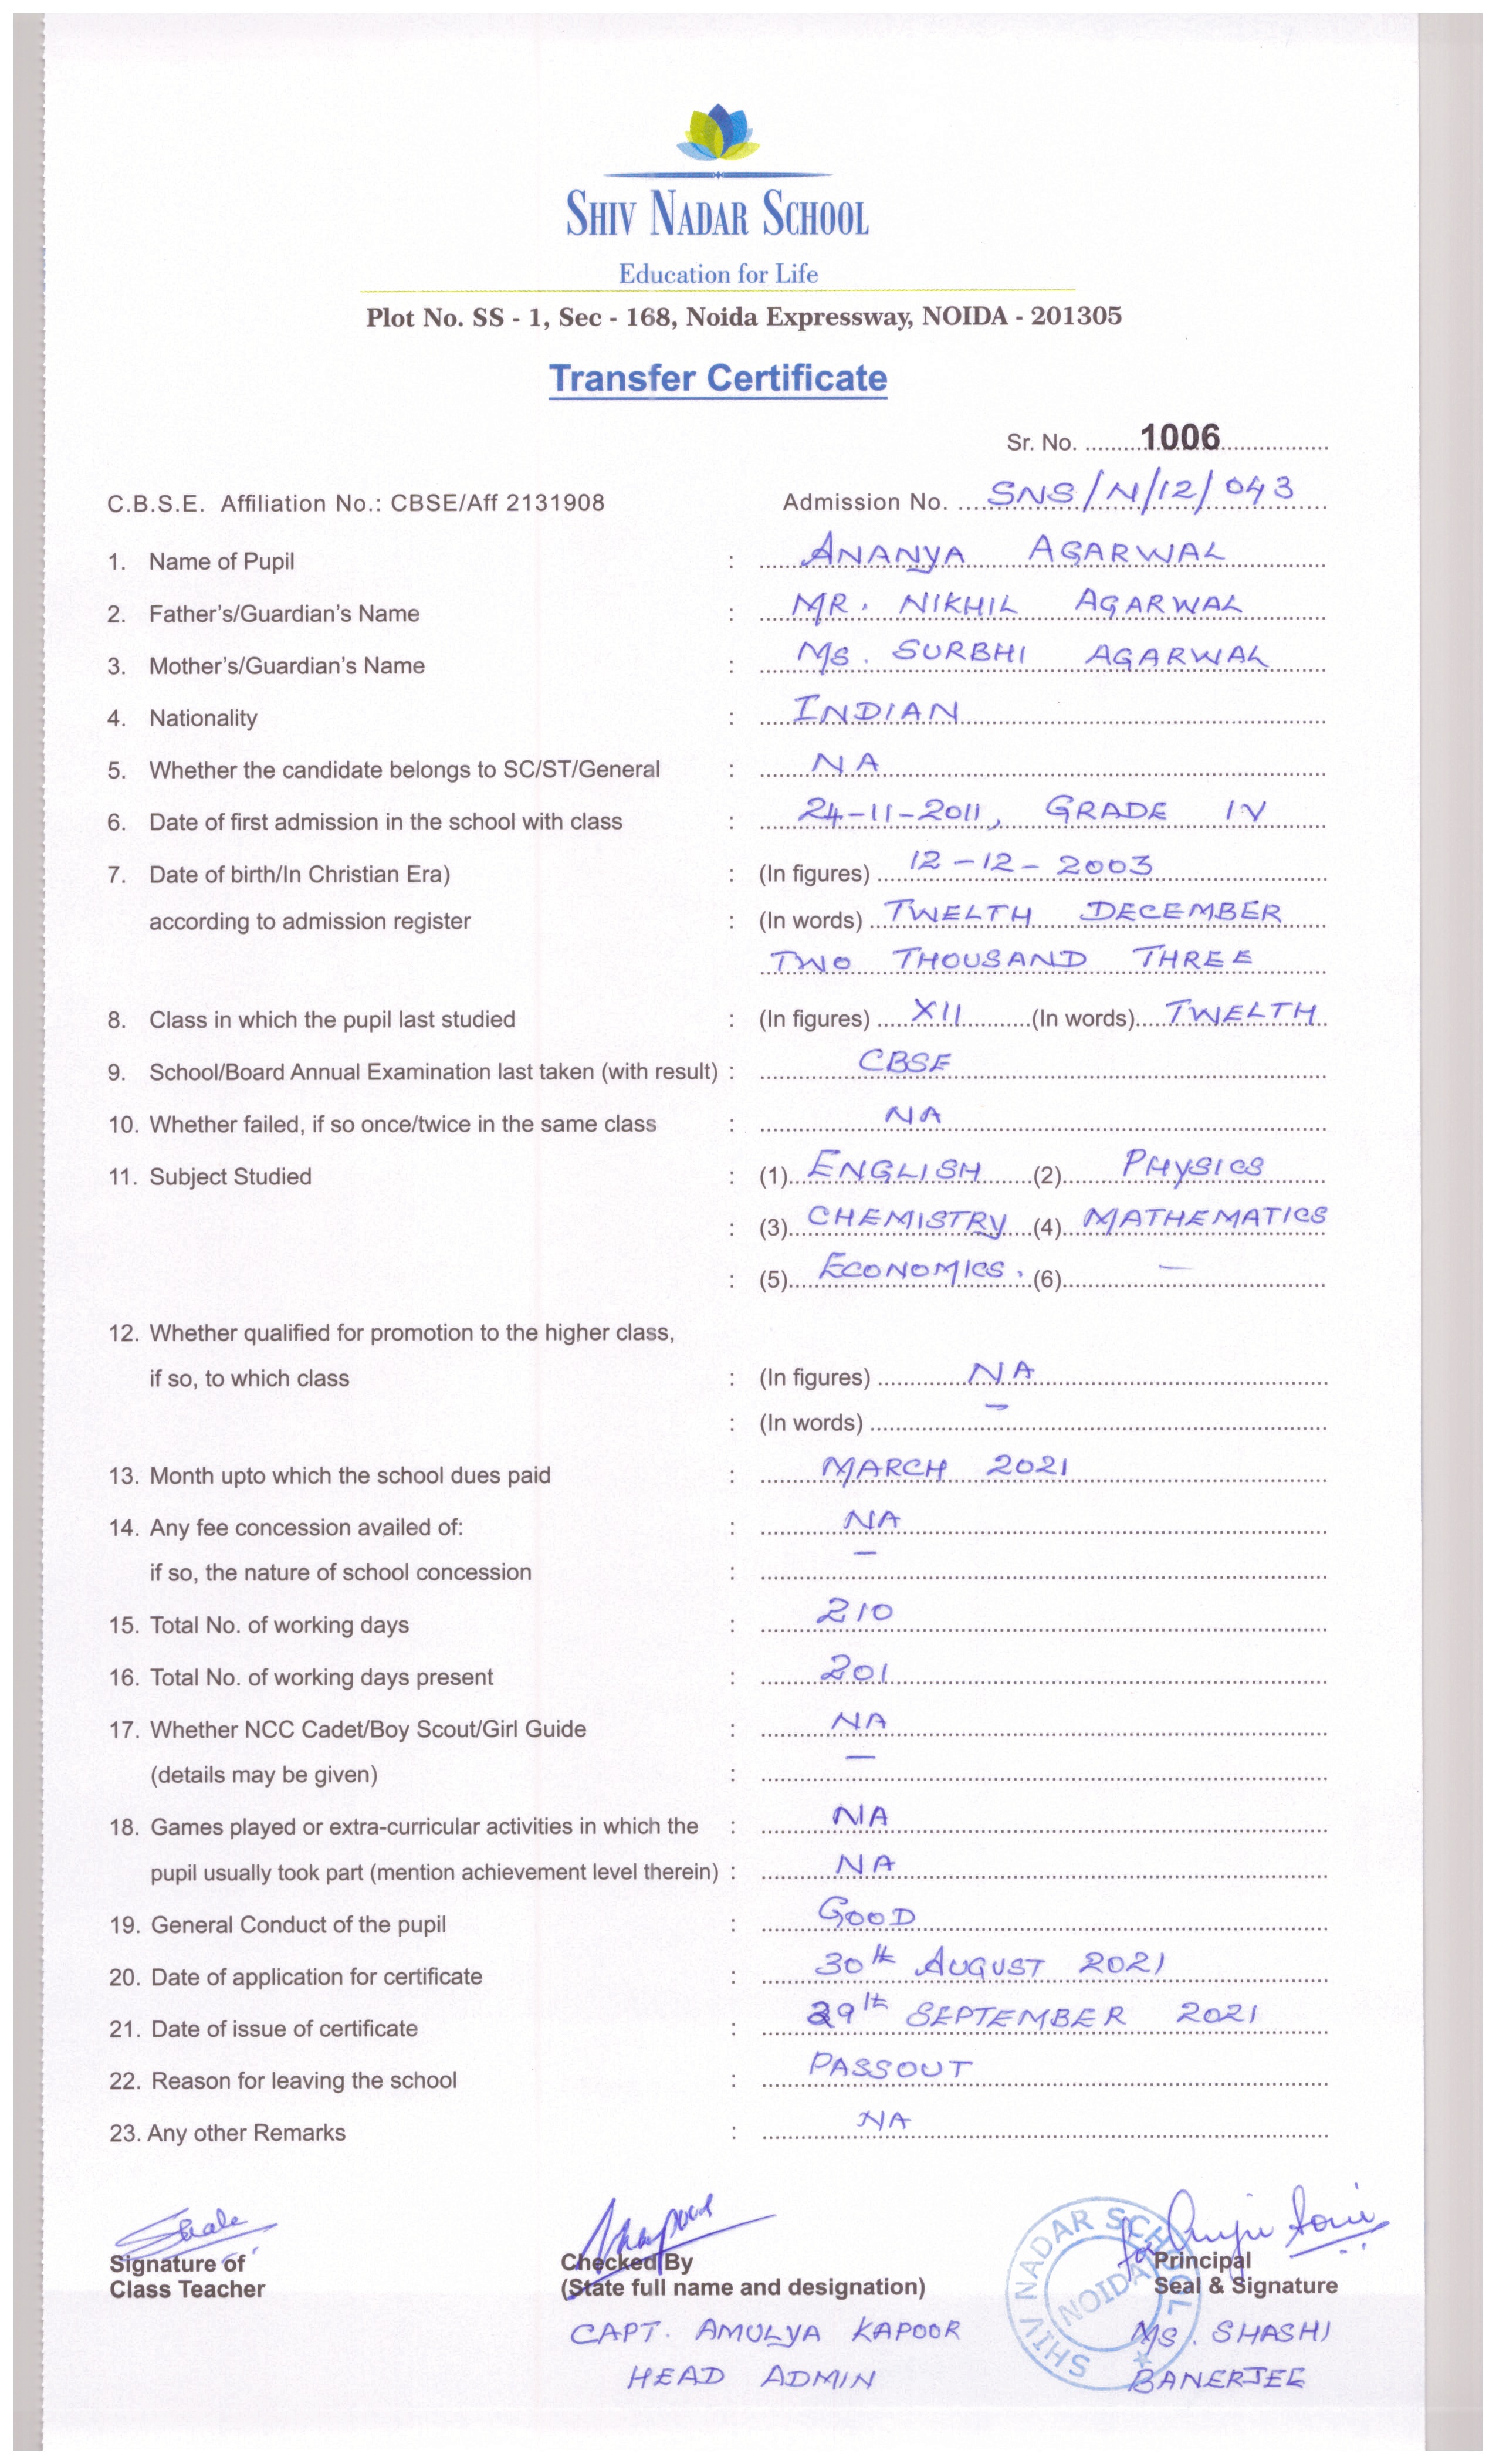 SHIV NADAR SCHOOL
Education for Life
Plot No. SS - 1, Sec - 168, Noida Expressway, NOIDA - 201305
Transfer Certificate
Sr. No. 1006
C.B.S.E. Affiliation No.: CBSE/Aff 2131908 Admission No. SNS/N/12/043
1. Name of Pupil : ANANYA AGARWAL
2. Father's/Guardian's Name : MR. NIKHIL AGARWAL
3. Mother's/Guardian's Name : MS. SURBHI AGARWAL
4. Nationality : INDIAN
5. Whether the candidate belongs to SC/ST/General : NA
6. Date of first admission in the school with class : 24-11-2011, GRADE IV
7. Date of birth/In Christian Era) : (In figures) 12-12-2003
according to admission register : (In words) TWELTH DECEMBER
TWO THOUSAND THREE
8. Class in which the pupil last studied : (In figures) XII (In words) TWELTH
9. School/Board Annual Examination last taken (with result) : CBSE
10. Whether failed, if so once/twice in the same class : NA
11. Subject Studied : (1) ENGLISH (2) PHYSICS
: (3) CHEMISTRY (4) MATHEMATICS
: (5) ECONOMICS. (6) —
12. Whether qualified for promotion to the higher class,
if so, to which class : (In figures) NA
: (In words) —
13. Month upto which the school dues paid : MARCH 2021
14. Any fee concession availed of: : NA
if so, the nature of school concession : —
15. Total No. of working days : 210
16. Total No. of working days present : 201
17. Whether NCC Cadet/Boy Scout/Girl Guide : NA
(details may be given) : —
18. Games played or extra-curricular activities in which the : NA
pupil usually took part (mention achievement level therein) : NA
19. General Conduct of the pupil : GOOD
20. Date of application for certificate : 30th AUGUST 2021
21. Date of issue of certificate : 29th SEPTEMBER 2021
22. Reason for leaving the school : PASSOUT
23. Any other Remarks : NA
Signature of Checked By Principal
Class Teacher (State full name and designation) Seal & Signature
CAPT. AMULYA KAPOOR MS. SHASHI
HEAD ADMIN BANERJEE
SHIV NADAR SCHOOL
NOIDA